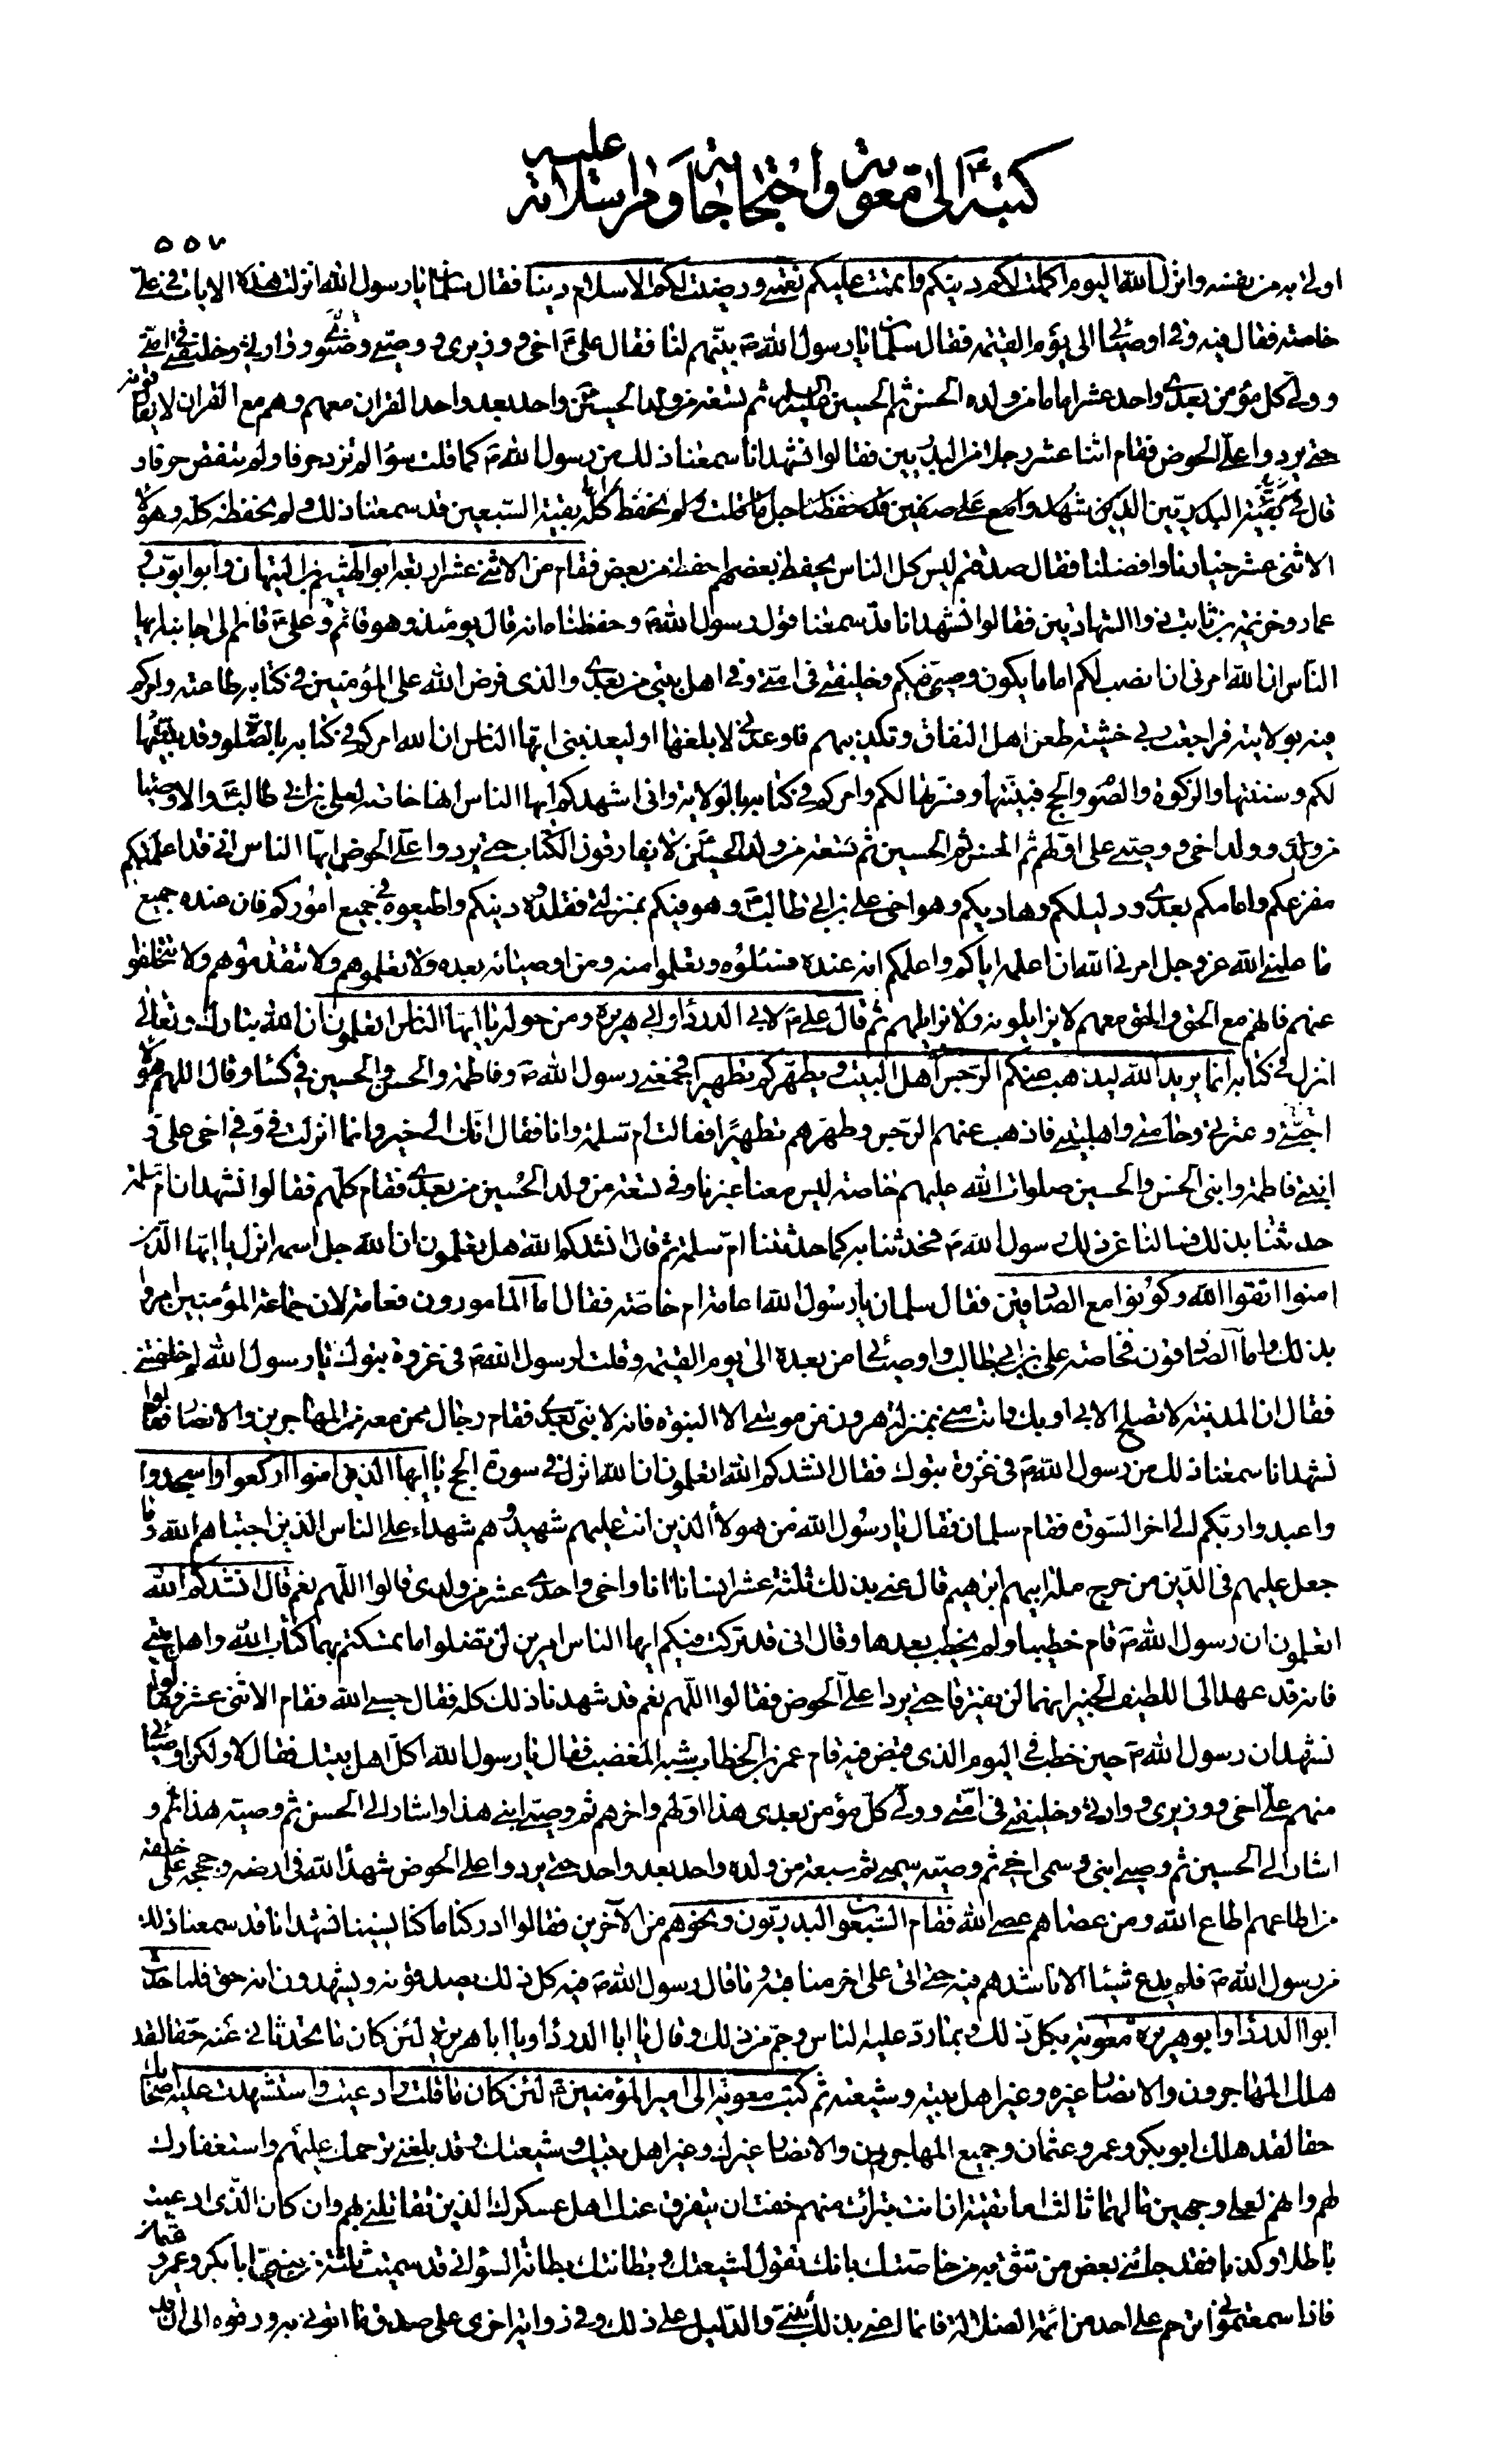 كتبه ع الى معوية واحتجاجاته ومراسلاته عليه
٥٥٧
اولى به من نفسه وانزل الله اليوم اكملت لكم دينكم واتممت عليكم نعمتي ورضيت لكم الاسلام دينا فقال سلمان يا رسول الله انزلت هذه الايات في على
خاصته فقال فيه وفي اوصيائى الى يوم القيمة فقال سلمان يا رسول الله ص بينهم لنا فقال على ع اخى ووزيرى ووصيى ووارثى وخليفتى في امتى
وولى كل مؤمن بعدى واحد عشر اماما من ولده الحسن ثم الحسين ثم تسعة من ولد الحسين واحد بعد واحد القران معهم وهم مع القران لا يفارقونه
حتى يردوا على الحوض فقام اثنا عشر رجلا من البدريين فقالوا نشهد انا سمعنا ذلك من رسول الله ص كما قلت سواء لم تزد حرفا ولم تنقص حرفا و
قال بقية البدريين الذين شهدوا مع على صفين قد حفظنا جل ما قلت ولم نحفظ كله بقية السبعين قد سمعنا ذلك ولم نحفظه كله وهؤلاء
الاثنى عشر خيارنا وافضلنا فقال صدقتم ليس كل الناس يحفظ بعضهم احفظ من بعض فقام من الاثنى عشر اربعة ابو الهيثم بن التيهان وابو ايوب و
عمار وخزيمة بن ثابت ذو الشهادتين فقالوا نشهد انا قد سمعنا قول رسول الله ص وحفظنا ما نه قال يومئذ وهو قائم وعلى ع قائم الى جانبه ايها
الناس ان الله امرنى ان انصب لكم اماما يكون وصيى فيكم وخليفتى في امتى وفي اهل بيتى من بعدى والذى فرض الله على المؤمنين في كتابه طاعته وامركم
فيه بولايته فراجعت ربى خشية طعن اهل النفاق وتكذيبهم فاوعدنى لابلغها او ليعذبنى ايها الناس ان الله امركم في كتابه بالصلوة وقد بينتها
لكم وسننتها والزكوة والصوم والحج فبينتها وفسرتها لكم وامركم في كتابه بالولاية وانى اشهدكم ايها الناس انها خاصة لعلى بن ابى طالب ع والاوصياء
من ولدى وولد اخى ووصيى على اولهم ثم الحسن ثم الحسين ثم تسعة من ولد الحسين لا يفارقون الكتاب حتى يردوا على الحوض ايها الناس انى قد اعلمتكم
مفزعكم وامامكم بعدى ودليلكم وهاديكم وهو اخى على بن ابى طالب ع وهو فيكم بمنزلتى فقلدوه دينكم واطيعوه في جميع اموركم فان عنده جميع
ما علمنى الله عز وجل امرنى الله ان اعلمه اياكم واعلمكم انه عنده فسئلوه وتعلموا منه ومن اوصيائه بعده ولا تعلموهم ولا تتقدموهم ولا تتخلفوا
عنهم فانهم مع الحق والحق معهم لا يزايلونه ولا يزايلهم ثم قال على ع لابى الدرداء وابى هريرة ومن حوله يا ايها الناس اتعلمون ان الله تبارك وتعالى
انزل في كتابه انما يريد الله ليذهب عنكم الرجس اهل البيت ويطهركم تطهيرا فجمعنى رسول الله ص وفاطمة والحسن والحسين في كساء وقال اللهم هؤلاء
احبتى وعترتى وخاصتى واهلبيتى فاذهب عنهم الرجس وطهرهم تطهيرا فقالت ام سلمة وانا فقال انك الى خير وانما انزلت في وفي اخى على و
ابنتى فاطمة وابنى الحسن والحسين صلوات الله عليهم خاصة ليس معنا غيرنا وفي تسعة من ولد الحسين من بعدى فقام كلهم فقالوا نشهد ان ام سلمة
حدثتنا بذلك فسالنا عن ذلك رسول الله ص فحدثنا به كما حدثتنا ام سلمة ثم قال انشدكم الله هل تعلمون ان الله جل اسمه انزل يا ايها الذين
امنوا اتقوا الله وكونوا مع الصادقين فقال سلمان يا رسول الله اعامة ام خاصة فقال اما المامورون فعامة لان جماعة المؤمنين امروا
بذلك واما الصادقون فخاصة على بن ابى طالب واوصيائى من بعده الى يوم القيمة وقلت لرسول الله ص في غزوة تبوك يا رسول الله لم خلفتنى
فقال ان المدينة لا تصلح الا بى او بك وانت منى بمنزلة هرون من موسى الا النبوة فانه لا نبى بعدى فقام رجال ممن معه من المهاجرين والانصار فقالوا
نشهد انا سمعنا ذلك من رسول الله ص في غزوة تبوك فقال انشدكم الله اتعلمون ان الله انزل في سورة الحج يا ايها الذين امنوا اركعوا واسجدوا
واعبدوا ربكم الى اخر السورة فقام سلمان فقال يا رسول الله من هؤلاء الذين انت عليهم شهيد وهم شهداء على الناس الذين اجتباهم الله وما
جعل عليهم في الدين من حرج ملة ابيهم ابرهيم قال عنى بذلك ثلثة عشر انسانا انا واخى واحدى عشر من ولدى قالوا اللهم نعم قال انشدكم الله
اتعلمون ان رسول الله ص قام خطيبا ولم يخطب بعدها وقال انى قد تركت فيكم ايها الناس امرين لن تضلوا ما تمسكتم بهما كتاب الله واهل بيتى
فانه قد عهد الى اللطيف الخبير انهما لن يفترقا حتى يردا على الحوض فقالوا اللهم نعم قد شهدنا ذلك كله فقال حسبى الله فقام الاثنى عشر فقالوا
نشهد ان رسول الله ص حين خطب في اليوم الذى قبض فيه قام عمر بن الخطاب شبه المغضب فقال يا رسول الله اكل اهل بيتك فقال لا ولكن اوصيائى
منهم على اخى ووزيرى ووارثى وخليفتى في امتى وولى كل مؤمن بعدى هذا اولهم واخرهم ثم وصيه ابنى هذا واشار الى الحسن ثم وصيه هذا ثم و
اشار الى الحسين ثم وصيه ابنى وسمى اخى ثم وصيه سميى ثم سبعة من ولده واحد بعد واحد حتى يردوا على الحوض شهداء الله في ارضه وحججه على خلقه
من اطاعهم اطاع الله ومن عصاهم عصى الله فقام السبعون البدريون ونحوهم من الآخرين فقالوا ادركنا ما كنا نسينا نشهد انا قد سمعنا ذلك
من رسول الله ص فلم يدع شيئا الا ناشدهم فيه حتى اتى على اخر مناقبه وما قال رسول الله ص فيه كل ذلك يصدقونه ويشهدون انه حق فلما حدث
ابو الدرداء وابو هريرة معوية بكل ذلك وبما رد عليه الناس وجم من ذلك وقال يا ابا الدرداء ويا ابا هريرة لئن كان ما تحدثانى عنه حقا لقد
هلك المهاجرون والانصار غيره وغير اهل بيته وشيعته ثم كتب معوية الى امير المؤمنين ع لئن كان ما قلت وادعيت واستشهدت عليه اصحابك
حقا لقد هلك ابو بكر وعمر وعثمان وجميع المهاجرين والانصار غيرك وغير اهل بيتك وشيعتك وقد بلغنى ترحمك عليهم واستغفارك
لهم وانه لعلى وجهين ما لهما ثالث اما تقية ان انت تبرات منهم خفت ان يتفرق عنك اهل عسكرك الذين تقاتلنى بهم وان كان الذى ادعيت
باطلا وكذبا فقد جائنى بعض من تثق به من خاصتك بانك تقول لشيعتك وبطانتك بطانة السوء انى قد سميت ثلثة بنين لى ابا بكر وعمر وعثمان
فاذا سمعتمونى اترحم على احد من ائمة الضلالة فانما اعنى بذلك بنى والدليل على ذلك وفي رواية اخرى على صدق ما اتونى به ورقوه الى ان قد